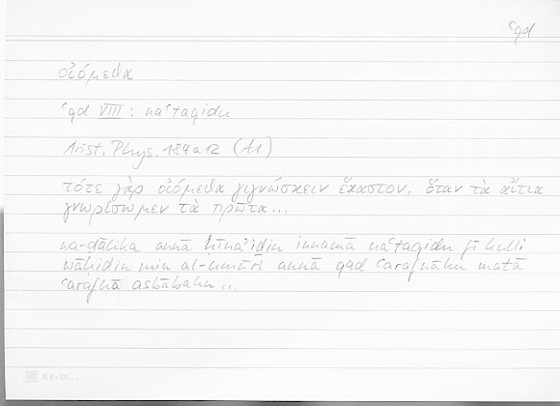 ʿqd
οἰόμεθα
ʿqd VIII : naʿtaqidu
Arist. Phys. 184a12 (A1)
τότε γὰρ οἰόμεθα γιγνώσκειν ἕκαστον, ὅταν τὰ αἴτια
γνωρίσωμεν τὰ πρῶτα...
wa-ḏālika annā ḥīnaʾiḏin innamā naʿtaqidu fī kulli
wāḥidin min al-umūri annā qad ʿarafnāhu matā
ʿarafnā asbābahu...